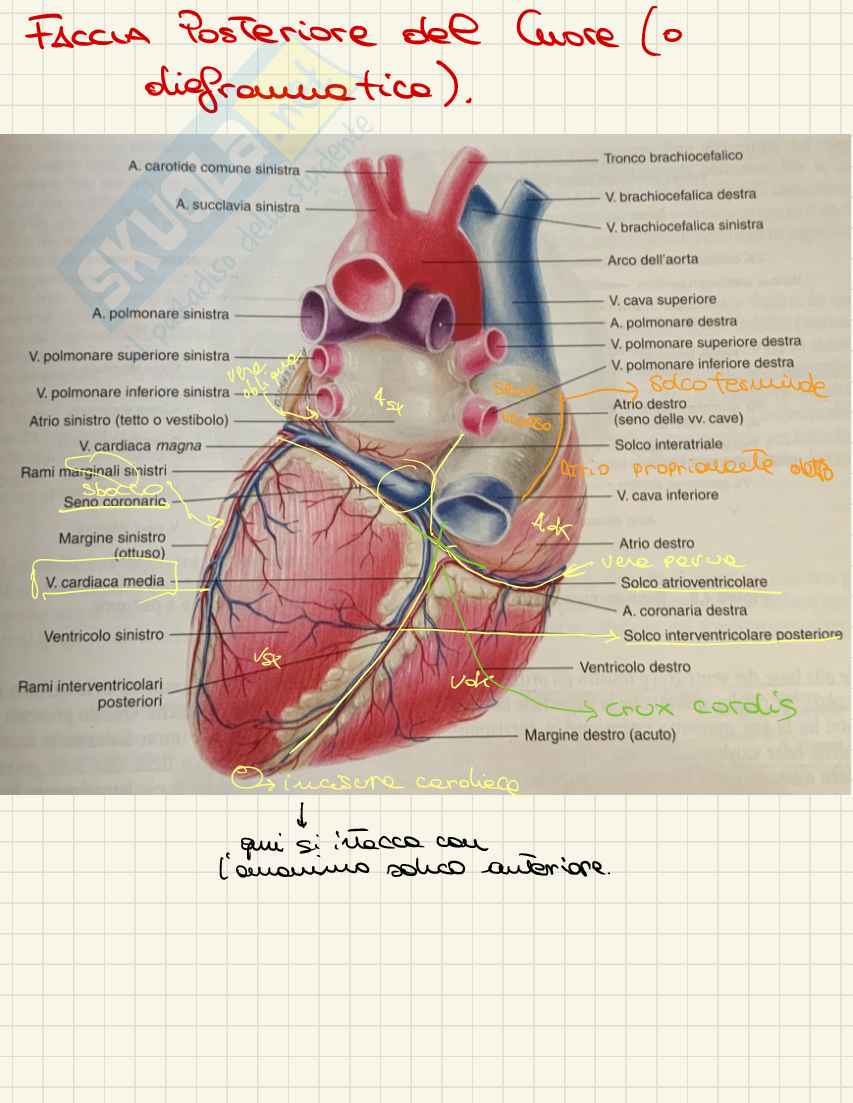 FACCIA Posteriore del Cuore (o
diaframmatica).
SKUOLA.net
il paradiso dello studente
A. carotide comune sinistra
A. succlavia sinistra
A. polmonare sinistra
V. polmonare superiore sinistra
vena
obliqua
V. polmonare inferiore sinistra
Atrio sinistro (tetto o vestibolo)
V. cardiaca magna
Rami marginali sinistri
sbocco
Seno coronario
Margine sinistro
(ottuso)
V. cardiaca media
Ventricolo sinistro
Rami interventricolari
posteriori
Asx
Vsx
Vdx
Adx
Tronco brachiocefalico
V. brachiocefalica destra
V. brachiocefalica sinistra
Arco dell'aorta
V. cava superiore
A. polmonare destra
V. polmonare superiore destra
V. polmonare inferiore destra
solco terminale
Atrio destro
(seno delle vv. cave)
Solco interatriale
Atrio propriamente detto
V. cava inferiore
Atrio destro
vena parva
Solco atrioventricolare
A. coronaria destra
Solco interventricolare posteriore
Ventricolo destro
crux cordis
Margine destro (acuto)
incisura cardiaca
qui si ittacca con
l'omonimo solco anteriore.